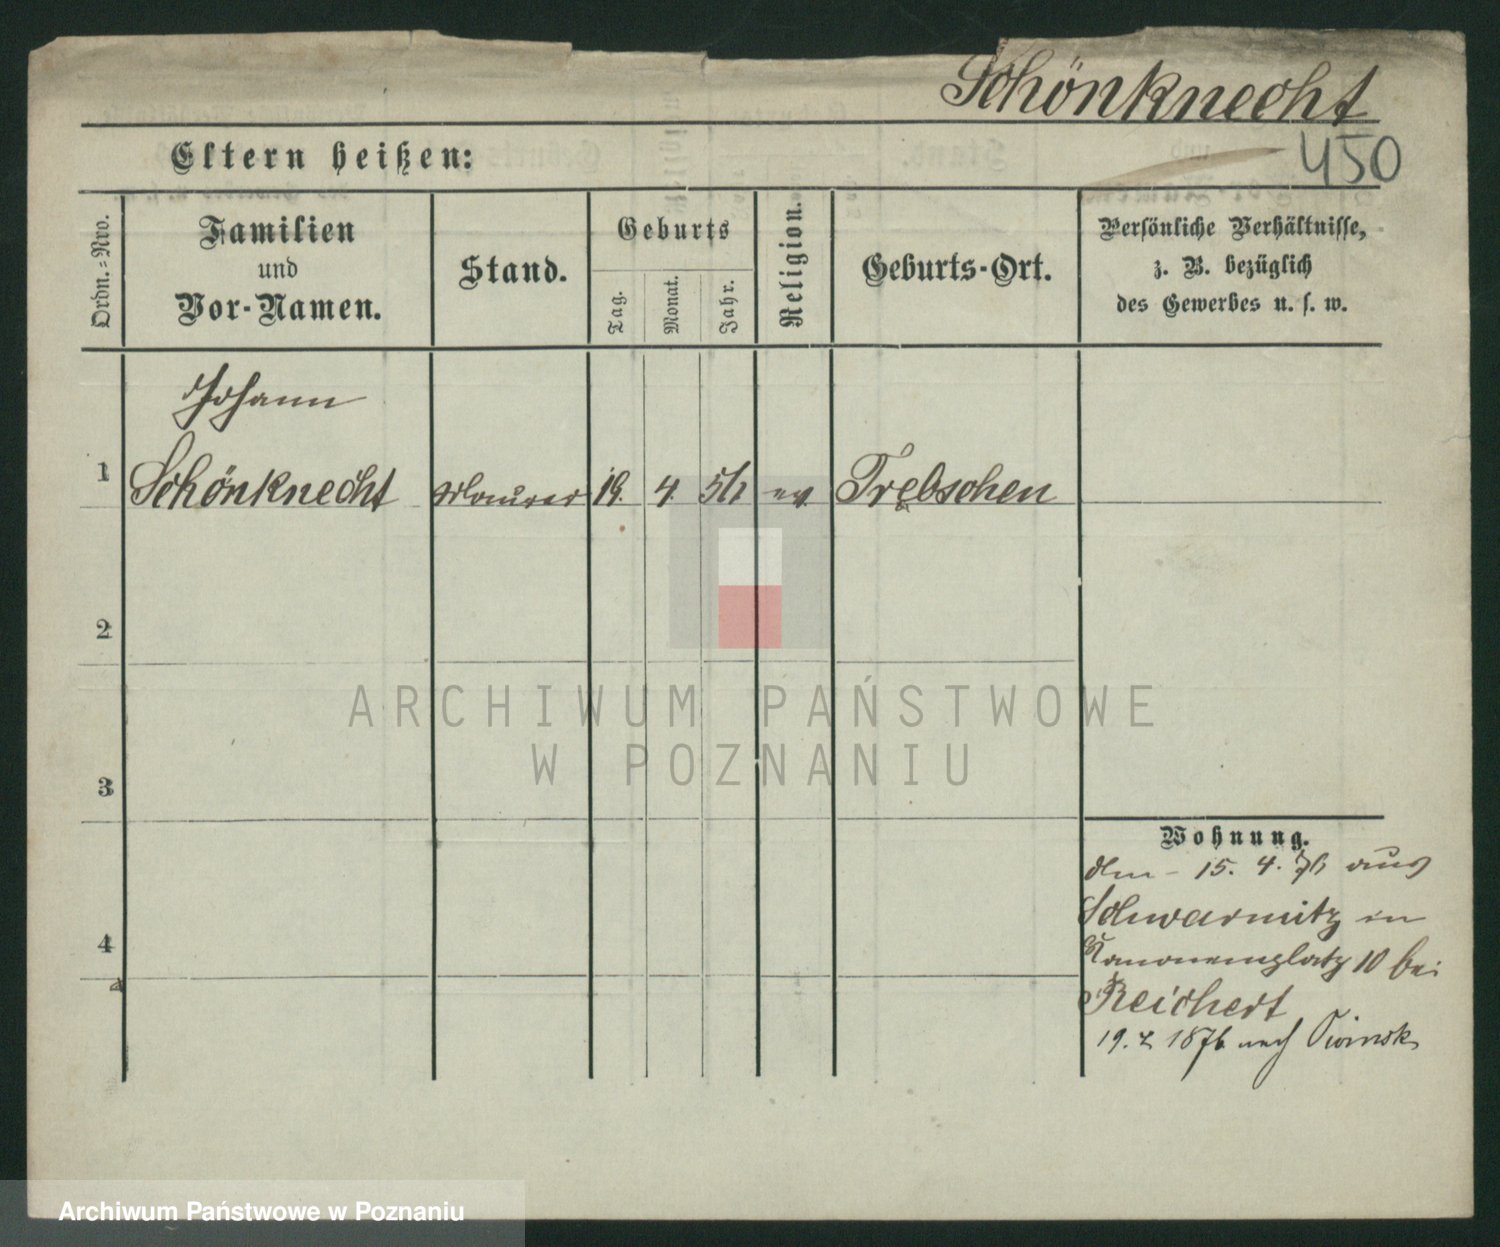 Schönknecht
450
Eltern heißen:
Ordn.-Nro.
Familien
und
Vor-Namen.
Stand.
Geburts
Tag.
Monat.
Jahr.
Religion.
Geburts-Ort.
Persönliche Verhältnisse,
z. B. bezüglich
des Gewerbes u. s. w.
Johann
1 Schönknecht Maurer 19. 4. ev. Trebschen
2
3
4
Wohnung.
den 15. 4. 76 aus
Schwarmitz in
Kanonenplatz 10 bei
Reichert
19. 7. 1876 nach
ARCHIWUM PAŃSTWOWE
W POZNANIU
Archiwum Państwowe w Poznaniu